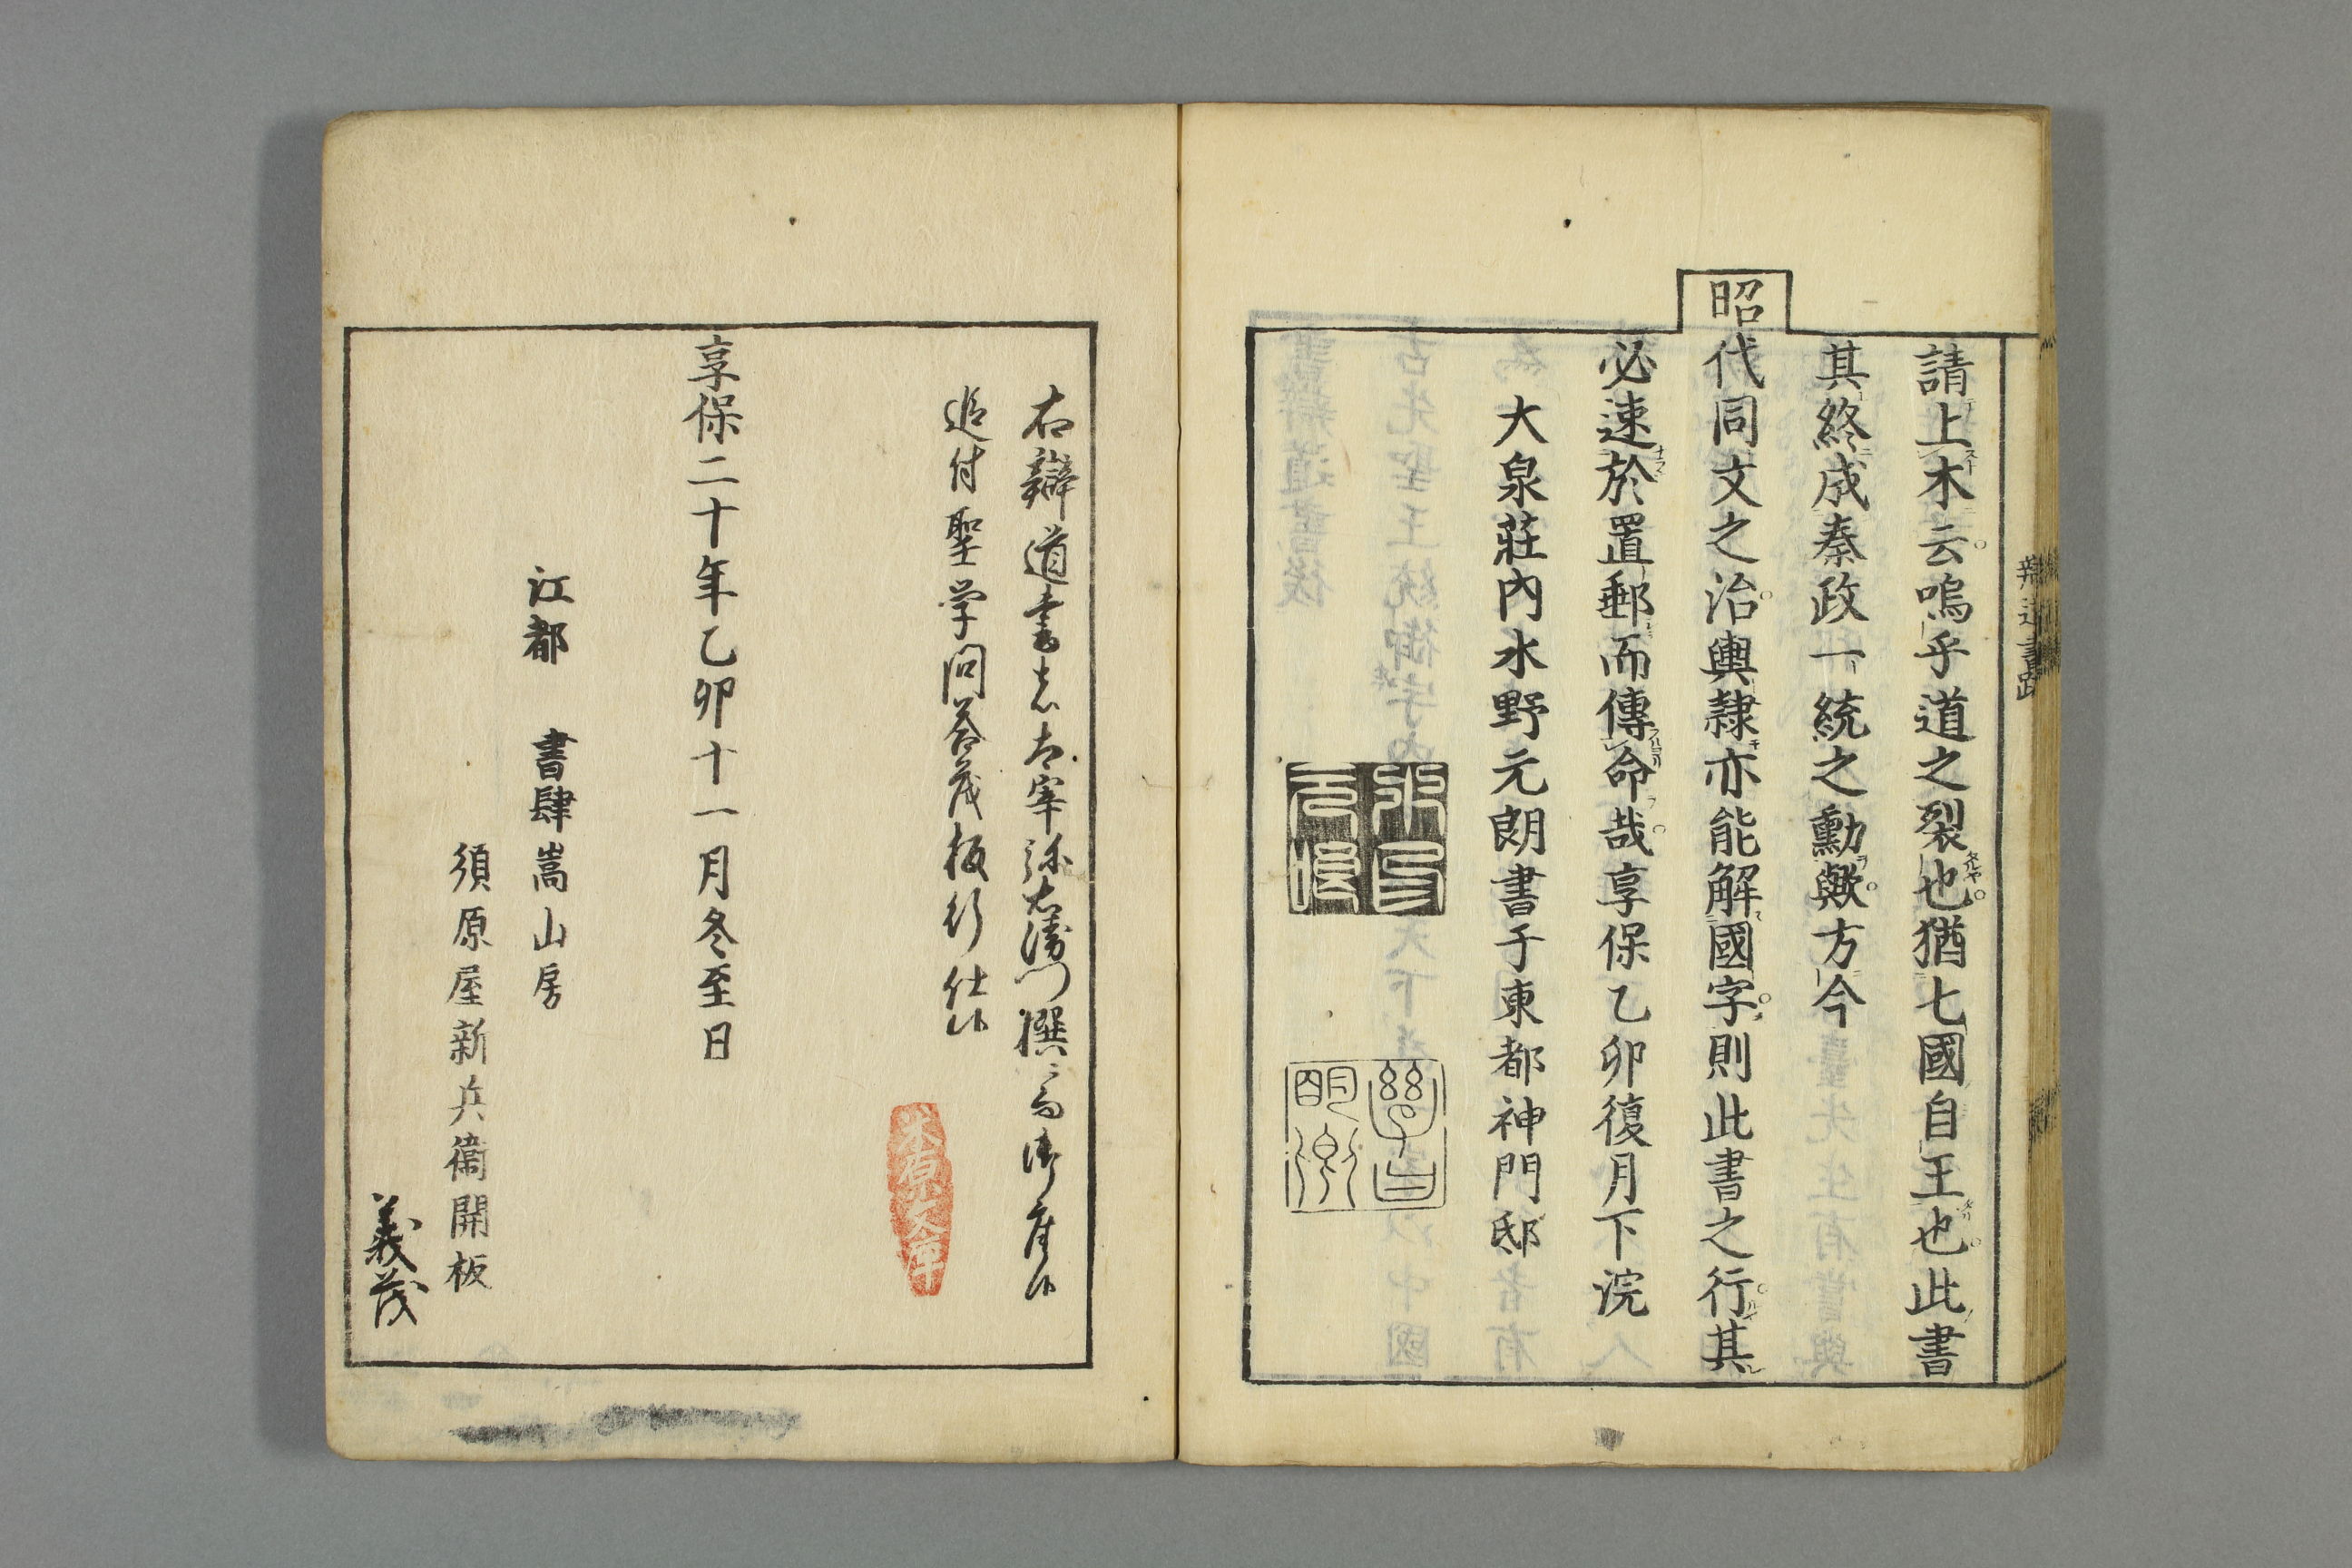 請上木云嗚乎道之裂也猶七國自王也此書
其終成秦政一統之勳歟方今
昭代同文之治輿隸亦能解國字則此書之行其
必速於置郵而傳命哉享保乙卯復月下浣
大泉莊內水野元朗書于東都神門邸
右辯道書者太宰弥右衛門撨ニ而御座候
追付聖学問答茂板行仕候
享保二十年乙卯十一月冬至日
江都 書肆嵩山房
須原屋新兵衞開板
義茂